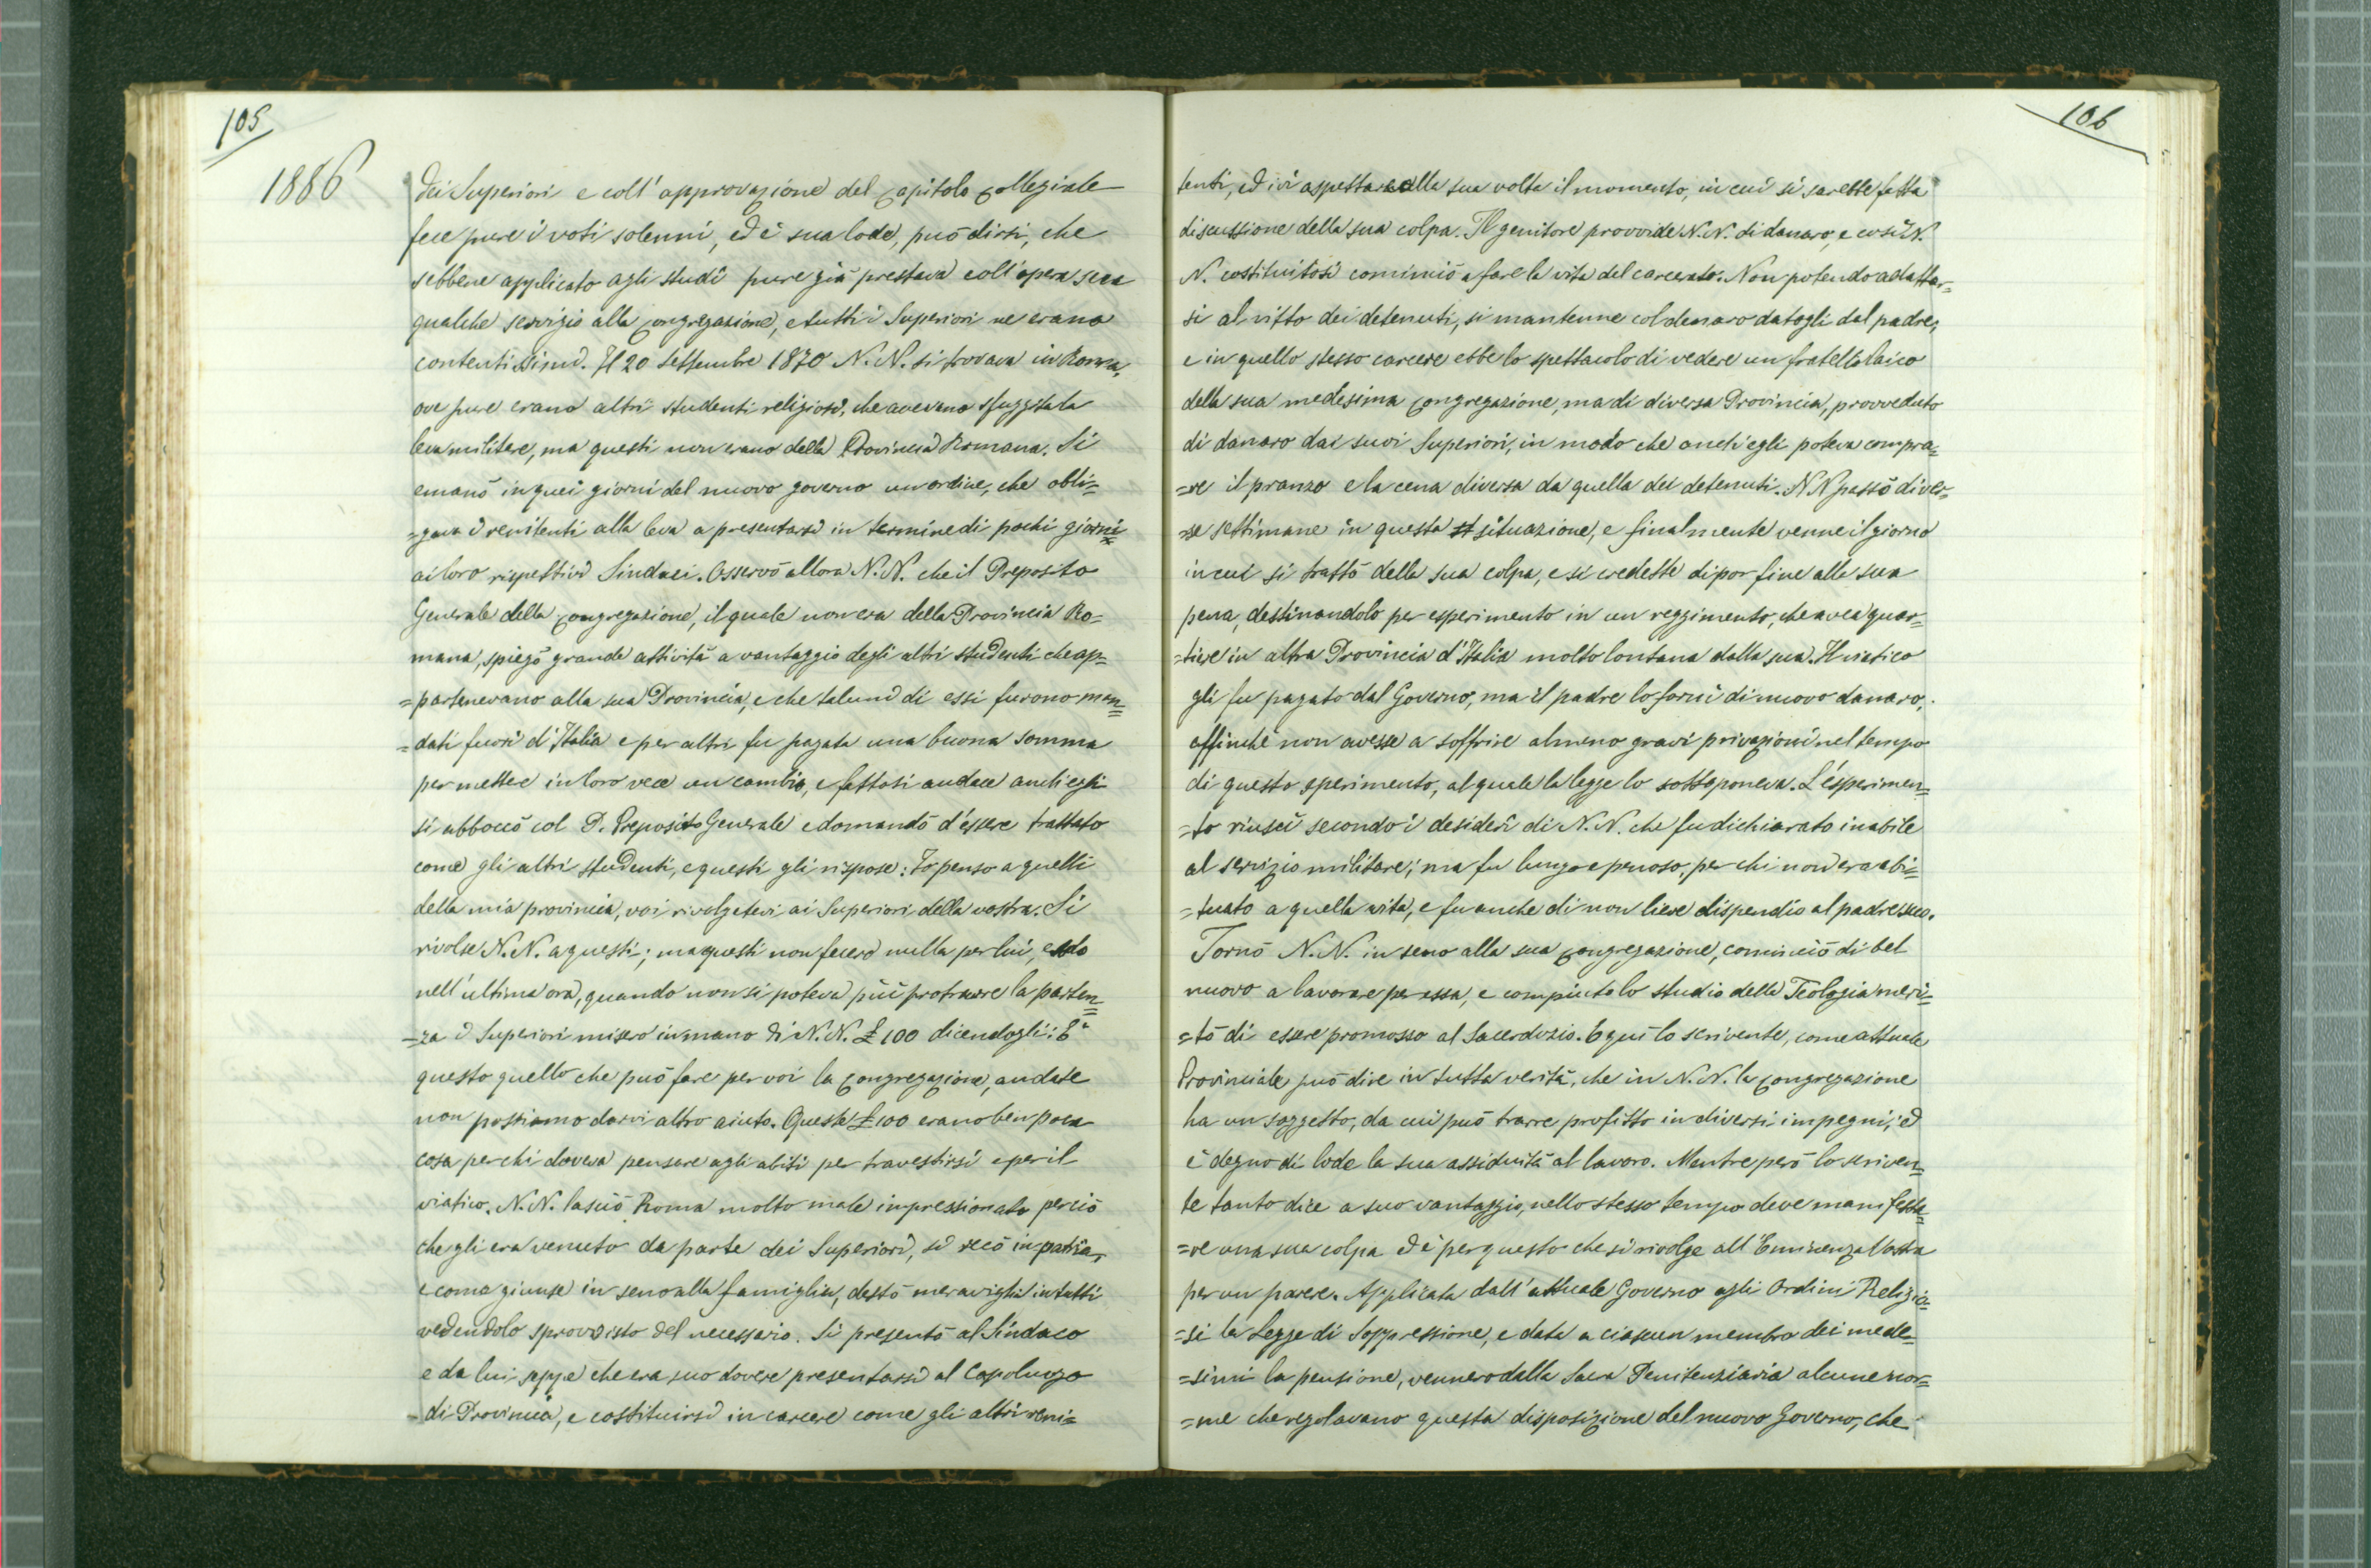 105
1886
dei Superiori e coll'approvazione del Capitolo Collegiale
fece pure i voti solenni, ed è sua lode, può dirsi, che
sebbene applicato agli studi pure già prestava coll'opera sua
qualche servizio alla Congregazione, e tutti i Superiori ne erano
contentissimi. Il 20 Settembre 1870 N. N. si trovava in Roma,
ove pure erano altri studenti religiosi, che avevano sfuggita la
leva militare, ma questi non erano della Provincia Romana. Si
emanò in quei giorni del nuovo governo un ordine, che obbli=
=gava i renitenti alla leva a presentarsi in termine di pochi giorni
ai loro rispettivi Sindaci. Osservò allora N. N. che il Preposito
Generale della Congregazione, il quale non era della Provincia Ro=
mana, spiegò grande attività a vantaggio degli altri studenti che ap=
=partenevano alla sua Provincia, e che taluni di essi furono man=
=dati fuori d'Italia e per altri fu pagata una buona somma
per mettere in loro vece un cambio, e fattosi audace anch'egli
si abboccò col P. Preposito Generale e domandò d'essere trattato
come gli altri studenti, e questi gli rispose: Io penso a quelli
della mia provincia, voi rivolgetevi ai Superiori della vostra. Si
rivolse N. N. a questi; ma questi non fecero nulla per lui, e solo
nell'ultima ora, quando non si poteva più protrarre la parten=
=za i Superiori misero in mano di N. N. £ 100 dicendogli: È
questo quello che può fare per voi la Congregazione, andate
non possiamo darvi altro aiuto. Queste £ 100 erano ben poca
cosa per chi doveva pensare agli abiti per travestirsi e per il
viatico. N. N. lasciò Roma molto male impressionato per ciò
che gli era venuto da parte dei Superiori, si recò in patria,
e come giunse in seno alla famiglia, destò meraviglia in tutti
vedendolo sprovvisto del necessario. Si presentò al Sindaco
e da lui seppe che era suo dovere presentarsi al Capoluogo
di Provincia, e costituirsi in carcere come gli altri reni=
106
tenti, ed ivi aspettare alla sua volta il momento, in cui si sarebbe fatta
discussione della sua colpa. Il genitore provvide N. N. di danaro, e così N.
N. costituitosi cominciò a fare la vita del carcerato. Non potendo adattar=
si al vitto dei detenuti, si mantenne col denaro datogli dal padre,
e in quello stesso carcere ebbe lo spettacolo di vedere un fratello laico
della sua medesima Congregazione, ma di diversa Provincia, provveduto
di danaro dai suoi Superiori, in modo che anch'egli poteva compra=
=re il pranzo e la cena diversa da quella dei detenuti. N N passò diver=
=se settimane in questa st situazione, e finalmente venne il giorno
in cui si trattò della sua colpa, e si credette di por fine alla sua
pena, destinandolo per esperimento in un reggimento, che avea quar=
=tiere in altra Provincia d'Italia molto lontana dalla sua. Il viatico
gli fu pagato dal Governo, ma il padre lo fornì di nuovo danaro,
affinchè non avesse a soffrire almeno gravi privazioni nel tempo
di questo sperimento, al quale la legge lo sottoponeva. L'esperimen=
=to riuscì secondo i desideri di N. N. che fu dichiarato inabile
al servizio militare; ma fu lungo e penoso, per chi non era abi=
=tuato a quella vita, e fu anche di non lieve dispendio al padre suo.
Tornò N. N. in seno alla sua Congregazione, cominciò di bel
nuovo a lavorare per essa, e compiuto lo studio della Teologia meri=
=tò di essere promosso al Sacerdozio. E qui lo scrivente, come attuale
Provinciale può dire in tutta verità, che in N. N. la Congregazione
ha un soggetto, da cui può trarre profitto in diversi impegni; ed
è degno di lode la sua assiduità al lavoro. Mentre però lo scriven=
te tanto dice a suo vantaggio, nello stesso tempo deve manifesta=
=re una sua colpa ed è per questo che si rivolge all'Eminenza Vostra
per un parere. Applicata dall'attuale Governo agli Ordini Religio=
=si la Legge di Soppressione, e data a ciascun membro dei mede=
=simi la pensione, vennero dalla Sacra Penitenziaria alcune nor=
=me che regolavano questa disposizione del nuovo Governo, che